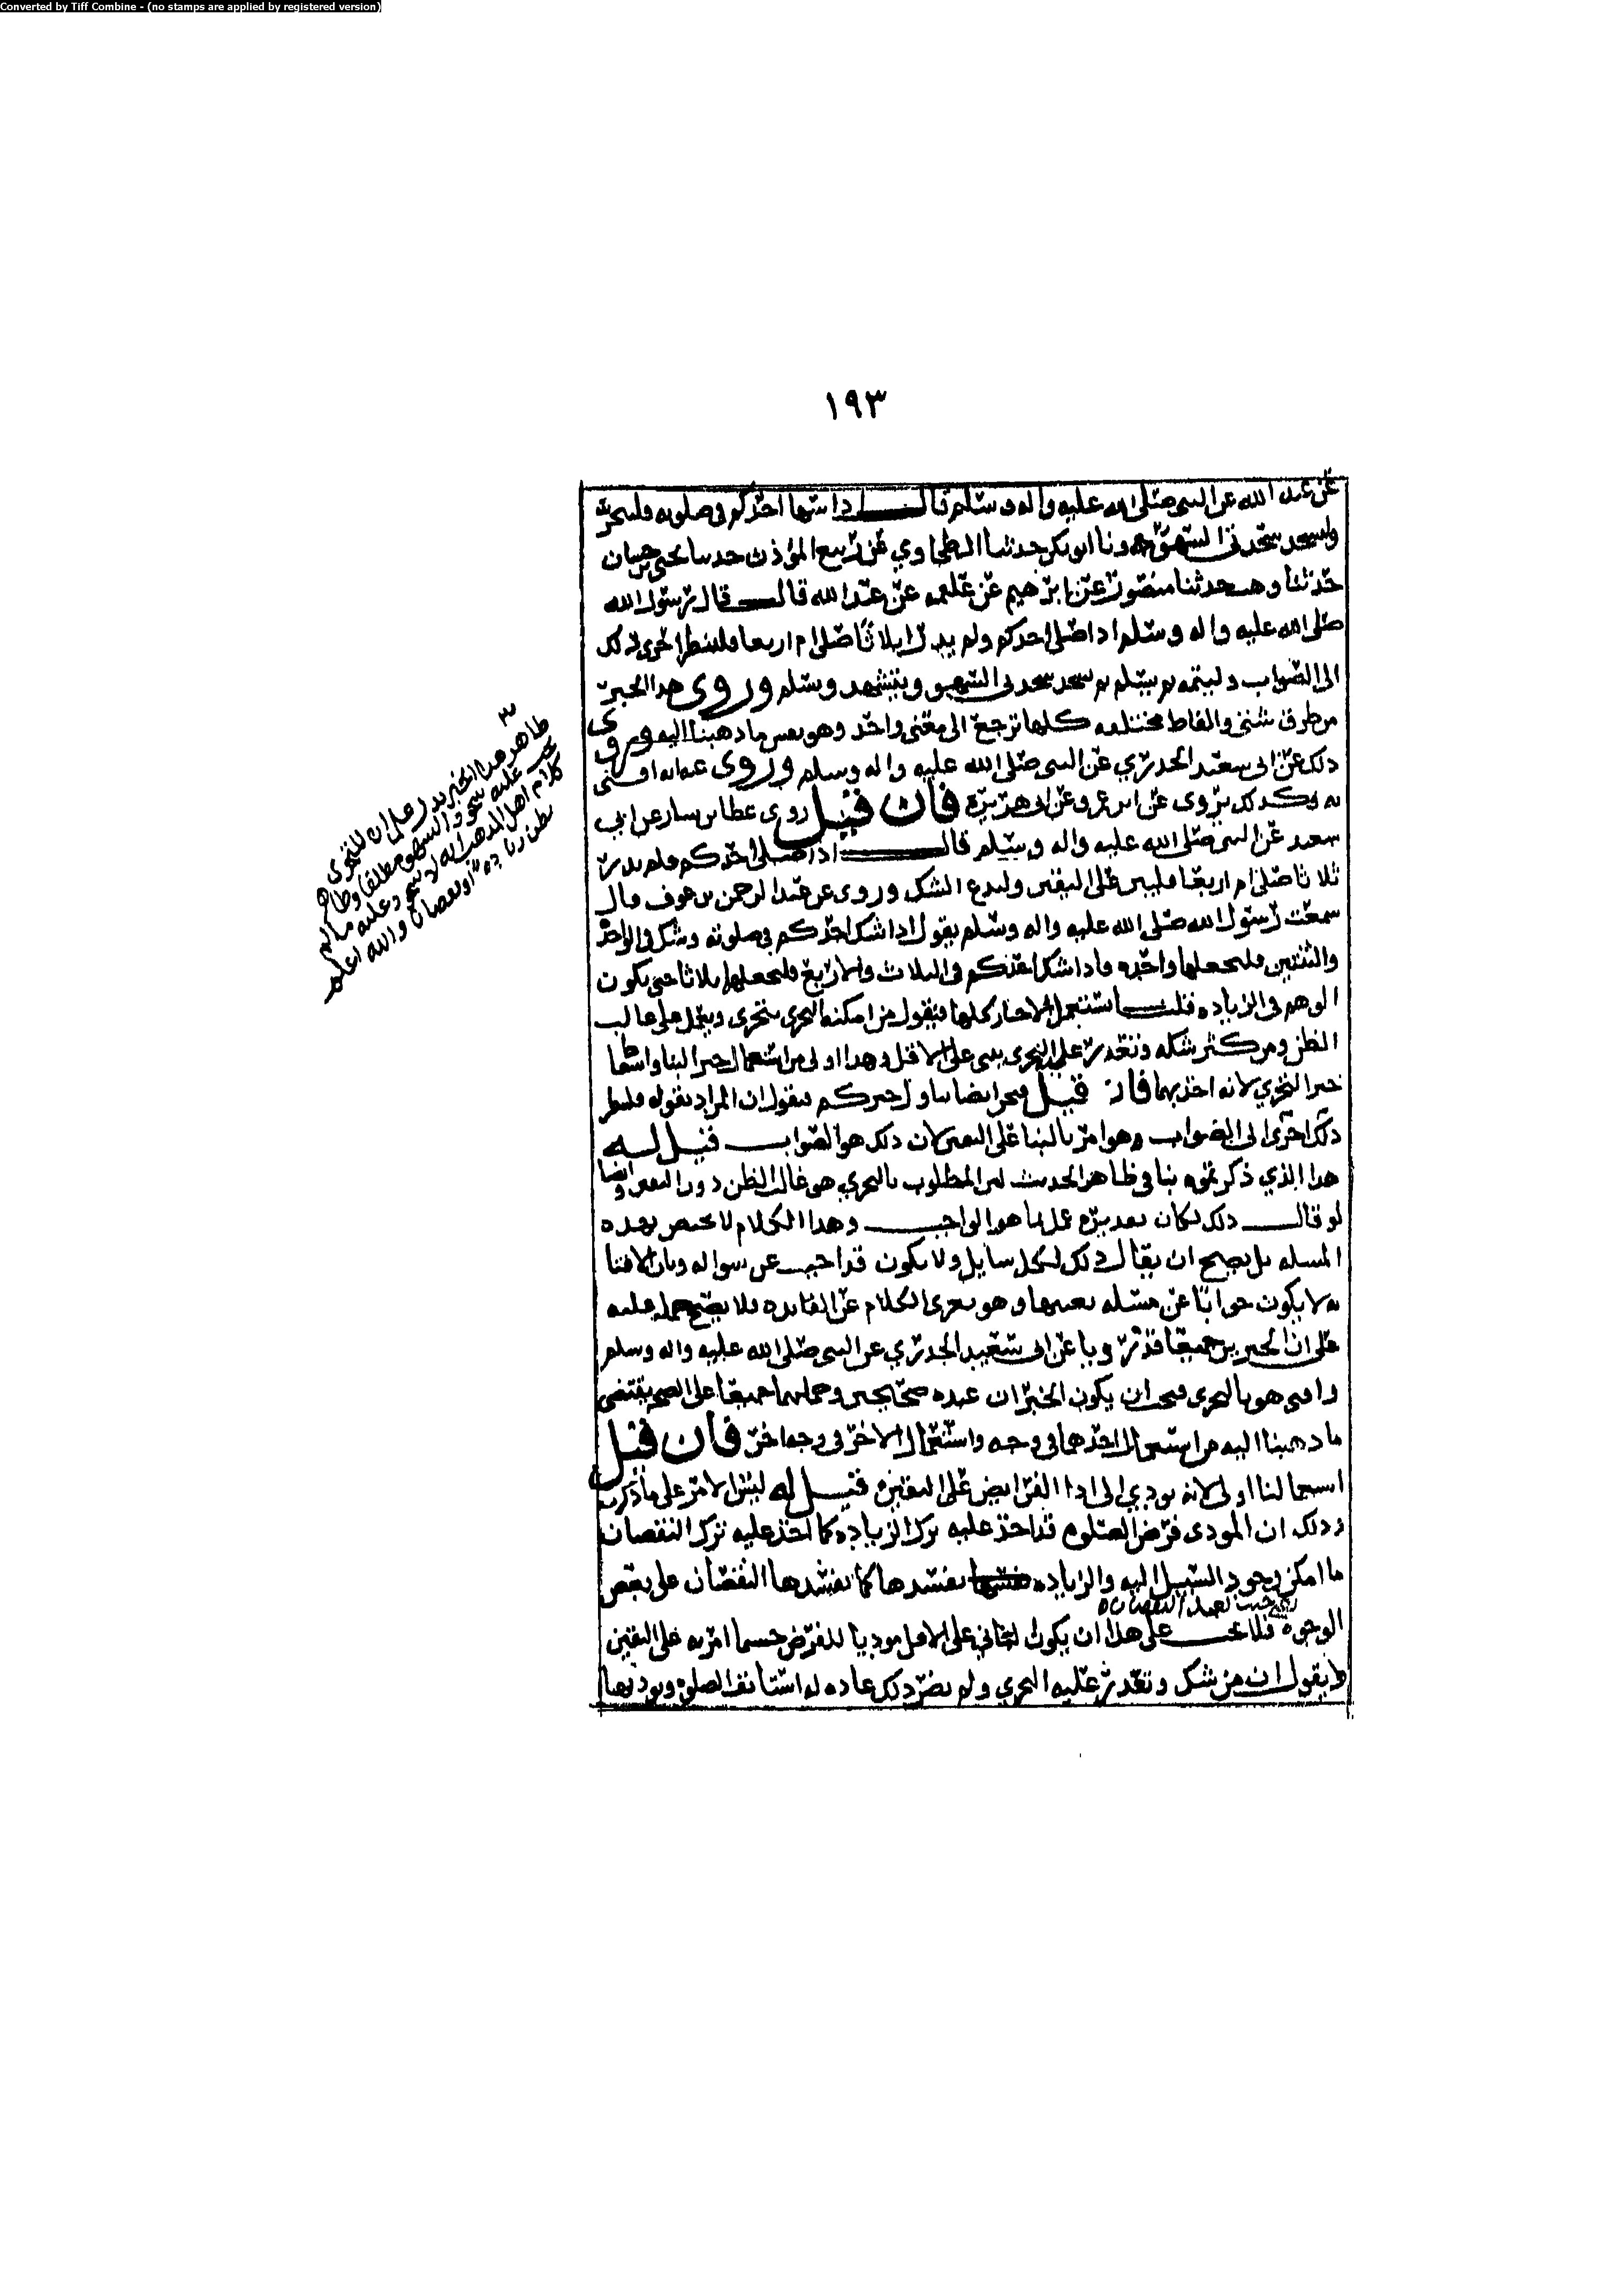 Converted by Tiff Combine - (no stamps are applied by registered version)
١٩٣
عن عبد الله عن النبي صلى الله عليه واله وسلم قال اذا سها احدكم في صلوته فليتحر
وليسجد سجدتي السهو ونا ابو بكر حدثنا الطحاوي عن ربيع المؤذن حدثنا يحيى بن حسان
حدثنا وهب حدثنا منصور عن ابرهيم عن علقمه عن عبد الله قال قال رسول الله
صلى الله عليه واله وسلم اذا صلى احدكم ولم يدر اثلاثا صلى ام اربعا فلينظر احرى ذلك
الى الصواب وليتمه ثم يسلم ثم يسجد سجدتي السهو ويتشهد ويسلم وروى هذا الخبر
من طرق شتى والفاظ مختلفه كلها ترجع الى معنى واحد وهو نفس ما ذهبنا اليه وروى
ذلك عن ابي سعيد الخدري عن النبي صلى الله عليه واله وسلم وروى عنه انه افتى
به وكذلك يروى عن ابن عمر وعن ابي هريرة فان قيل روى عطا بن يسار عن ابي
سعيد عن النبي صلى الله عليه واله وسلم قال اذا صلى احدكم فلم يدر
ثلاثا صلى ام اربعا فليبن على اليقين وليدع الشك وروى عن عبد الرحمن بن عوف قال
سمعت رسول الله صلى الله عليه واله وسلم يقول اذا شك احدكم في صلوته وشك في الواحد
والثنتين فليجعلها واحده فاذا شك احدكم في الثلاث والاربع فليجعلها ثلاثا حتى يكون
الوهم في الزياده قلنا نستعمل الاخبار كلها فنقول من امكنه التحرى يتحرى ويعمل على غالب
الظن ومن كثر شكه وتعذر عليه التحرى يبنى على الاقل وهذا اولى من استعمال خبر البنا واسقاط
خبر التحري لانه اخذ بهما فان قيل فنحن ايضا نتاول خبركم فنقول ان المراد بقوله فلينظر
ذلك احرى الى الصواب وهو امر بالبنا على اليقين لان ذلك هو الصواب قيل له
هذا الذي ذكرتموه ينافي ظاهر الحديث لان المطلوب بالتحري هو غالب الظن دون اليقين وايضا
لو قال ذلك لكان تقديره عمل بما هو الواجب وهذا الكلام لا يختص بهذه
المسله بل يصح ان يقال ذلك لكل سايل ولا يكون قد اجيب عن سواله وبان الافتا
به لا يكون جوابا عن مسئله بعينها وهو يعرى الكلام عن الفائده فلا يصح حمله عليه
على ان الخبرين جميعا قد رويا عن ابي سعيد الخدري عن النبي صلى الله عليه واله وسلم
وافتى هو بالتحرى فيجب ان يكون الخبران عنده صحيحين وحملهما جميعا على الصحه يقتضى
ما ذهبنا اليه من استعمال احدهما في وجه واستعمال الاخر في وجه اخر فان قيل
استعمالنا اولى لانه يودي الى ادا الفرايض على اليقين قيل له ليس الامر على ما ذكرت
وذلك ان المودى فرض الصلوه قد اخذ عليه ترك الزياده كما اخذ عليه ترك النقصان
ما امكن وجود السبيل اليه والزياده تفسدها كما يفسدها النقصان على بعض
الوجوه فلا يجب على هذا ان يكون الباني على الاقل موديا للفرض حسبما امر به على اليقين
ونقول ان من شك وتعذر عليه التحري ولم يصر ذلك عاده له استانف الصلوه ويوديها
ظاهر هذا الخبر يدل على ان المتحرى
يجب عليه سجود السهو مطلقا وظاهر
كلام اهل المذهب انه لا سجود عليه ما لم
يظن زياده او نقصان والله اعلم